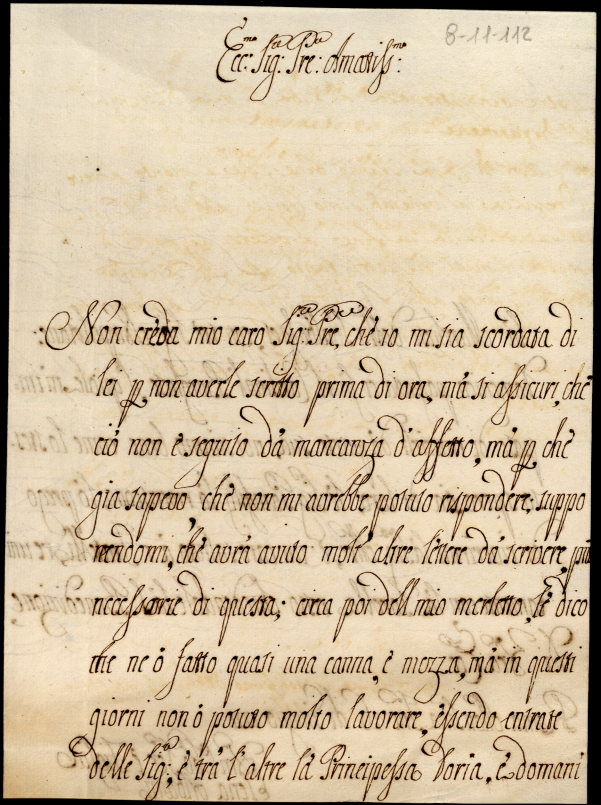 8-11-112
Ecc:mo Sig:re Pre: Amatiss:mo
Non creda mio caro Sig:re Pre, che io mi sia scordata di
lei p non averle scritto prima di ora, mà si assicuri, che
ciò non è seguito dà mancanza d'affetto, mà p che
gia sapevo, che non mi avrebbe potuto rispondere; suppo
nendomi, che avrà avuto molt'altre lettere dà scrivere, più
necessarie di questa; circa poi dell mio merletto, le dico
che ne ò fatto quasi una canna, e mezza, mà in questi
giorni non ò potuto molto lavorare, essendo entrate
delle Sig:re, e trà l'altre la Principessa Doria, e domani